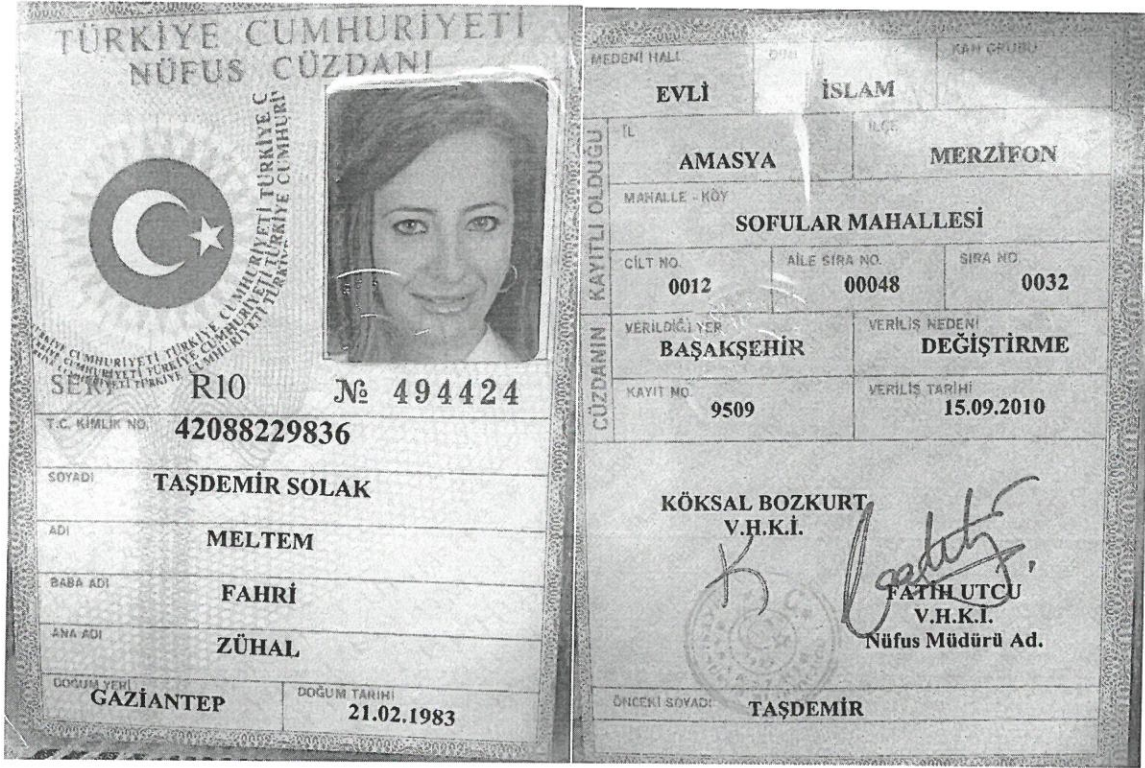 TÜRKİYE CUMHURİYETİ
NÜFUS CÜZDANI
SERİ R10 № 494424
T.C. KİMLİK NO. 42088229836
SOYADI TAŞDEMİR SOLAK
ADI MELTEM
BABA ADI FAHRİ
ANA ADI ZÜHAL
DOĞUM YERİ GAZİANTEP DOĞUM TARİHİ 21.02.1983
MEDENİ HALİ DİNİ KAN GRUBU
EVLİ İSLAM
CÜZDANIN KAYITLI OLDUĞU
İL İLÇE
AMASYA MERZİFON
MAHALLE - KÖY
SOFULAR MAHALLESİ
CİLT NO. AİLE SIRA NO. SIRA NO.
0012 00048 0032
VERİLDİĞİ YER VERİLİŞ NEDENİ
BAŞAKŞEHİR DEĞİŞTİRME
KAYIT NO. VERİLİŞ TARİHİ
9509 15.09.2010
KÖKSAL BOZKURT
V.H.K.İ.
FATİH UTCU
V.H.K.İ.
Nüfus Müdürü Ad.
ÖNCEKİ SOYADI TAŞDEMİR